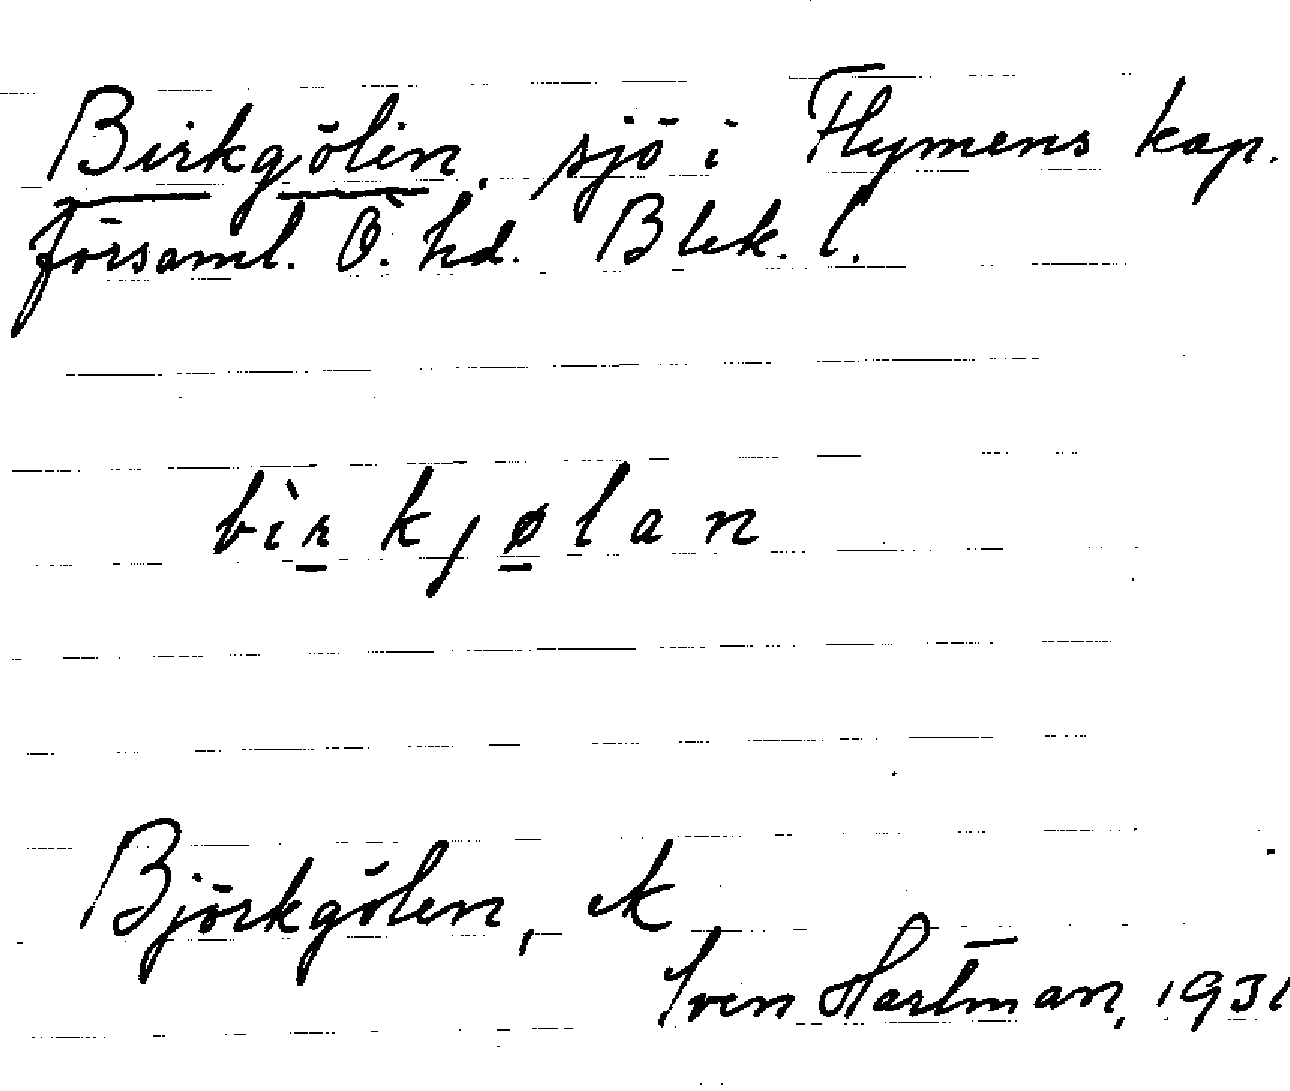 Birkgölen, sjö i Flymens kap.
församl. Ö. hd. Blek. l.
bìr kjølan
Björkgölen, k
Sven Hartman, 1931